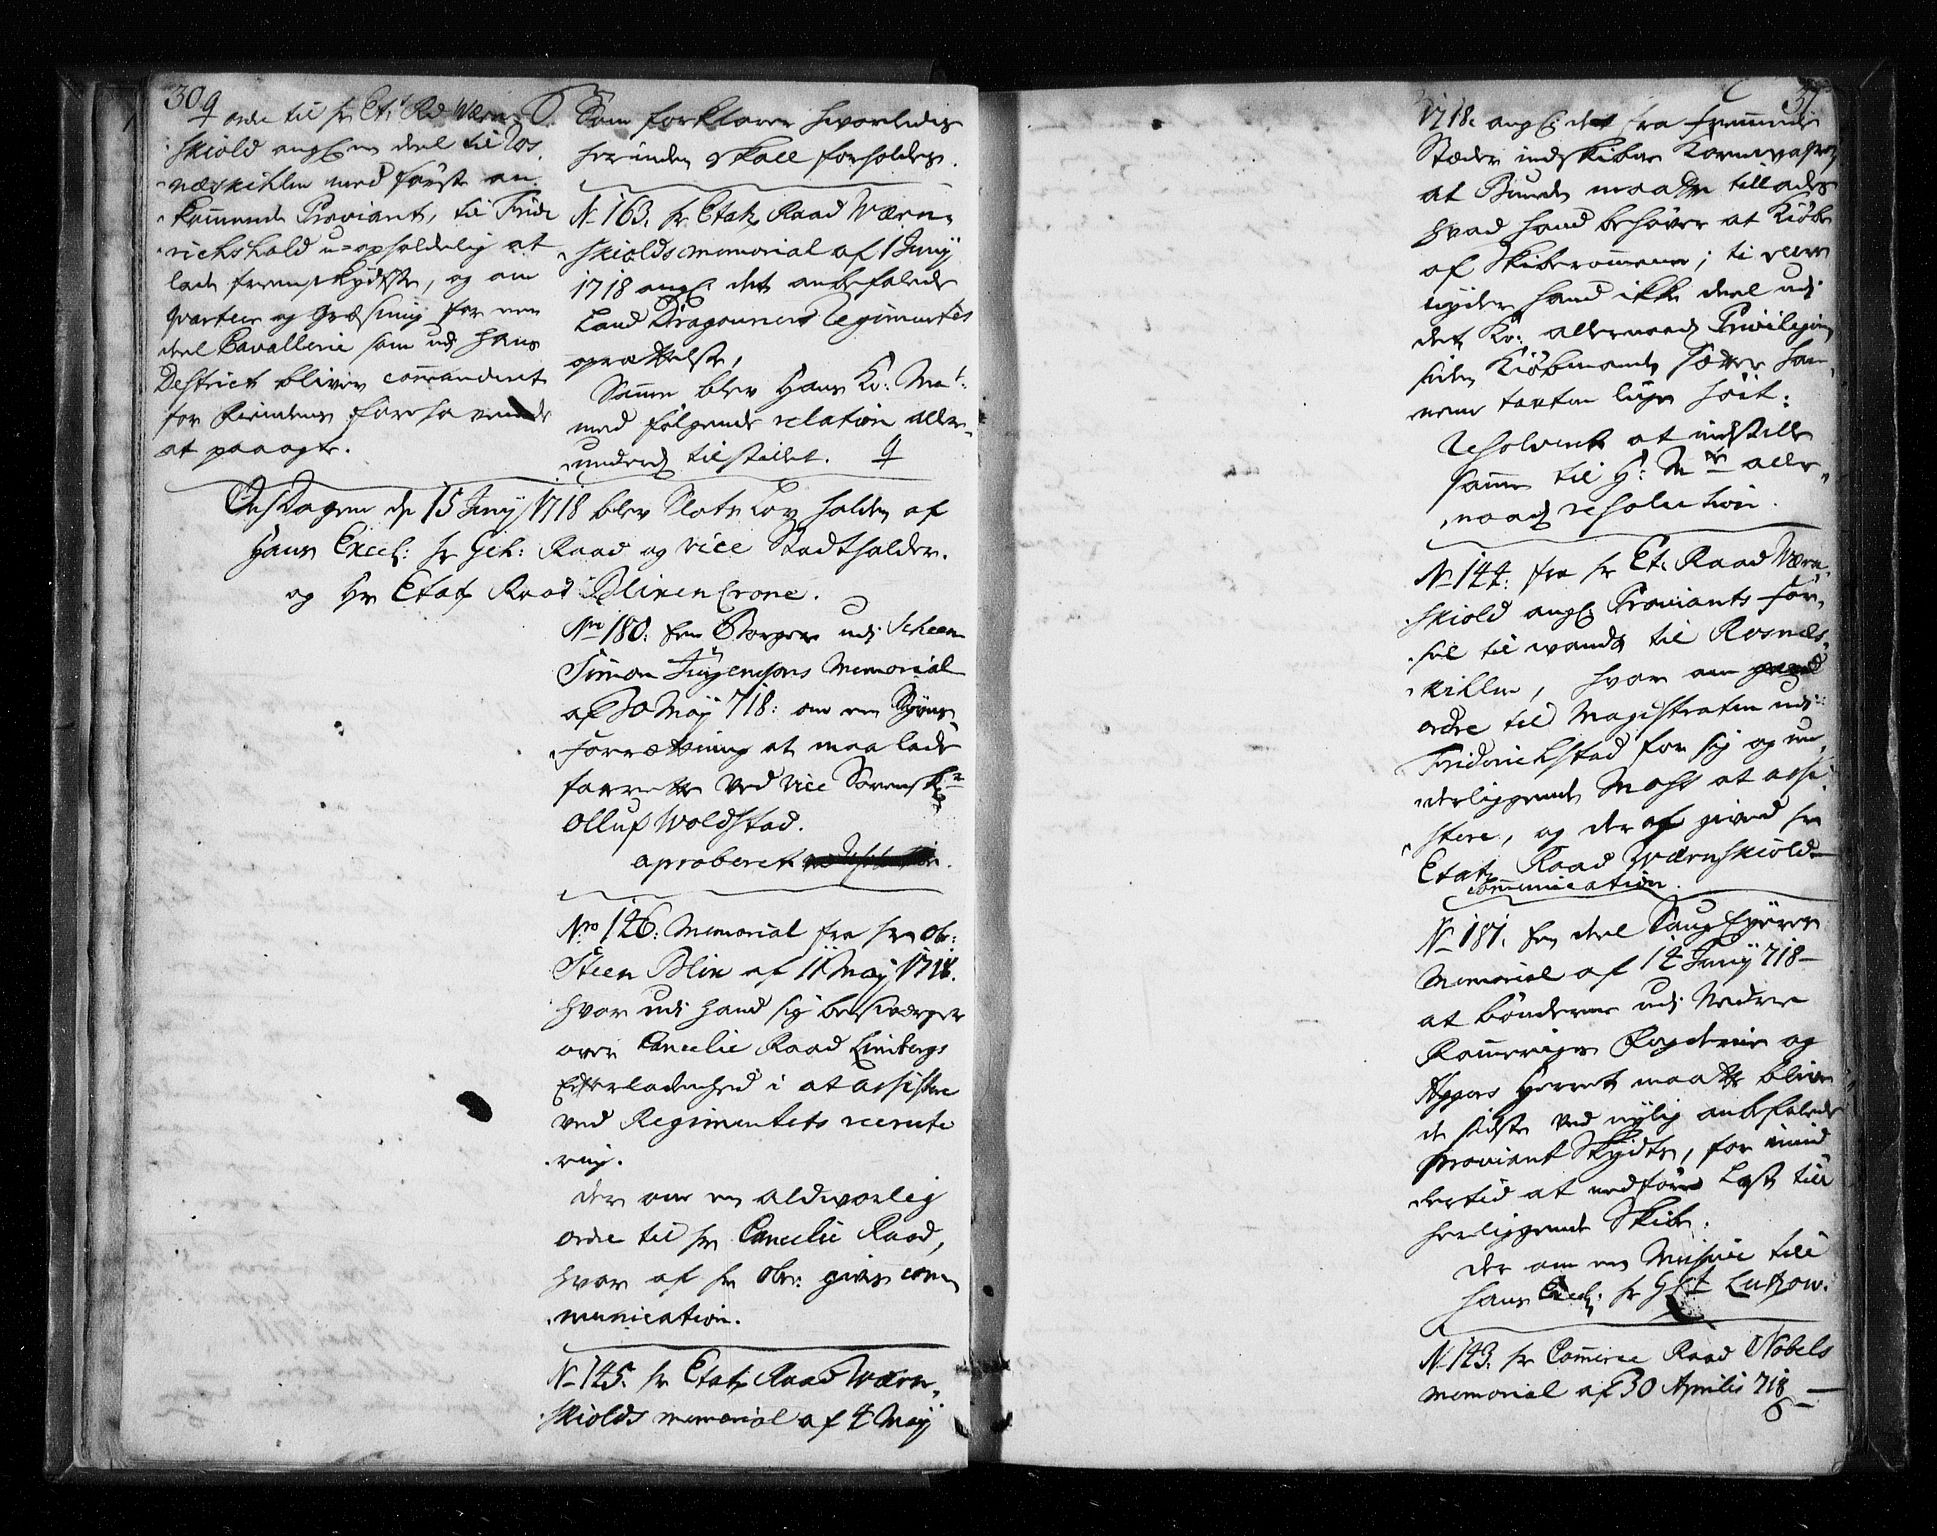 30
ordre til hr Et: Rd Wærn-
skiold ang: en deel til Ros-
næskihlen med første an-
kommende Proviant, til Fride-
richshald u-opholdelig at
lade fremskydse, og om
qvarteer og græsning for een
deel Cavallerie som udj hans
District bliver commanderet
for fiendens forehavende
at paaagte.
Som forklarer hvorledes
herinden skall forholdes.
N 163. hr Etatz Raad Wærn-
skiolds memorial af 1 Junij
1718 ang: det anbefalede
Land Dragouner Regimentes
oprættelse,
Samme blev Hans Ko: Mat:
med følgende relation aller-
underd: tilstillet.
Onsdagen d. 15 Junij 1718 blev Slots Lov holden af
Hans Excel: hr Geh: Raad og vice Stadtholder.
og Hr Etatz Raad Blixencrone.
No 180: En Borger udj Scheen
Simon Jürgensens Memorial
af 30 Maij 718: om en Syns-
forrætning at maa lade
forrette ved vice Sorenskr
Olluf Woldstad.
aproberet
No 126: Memorial fra hr Obr:
Steen Blix af 11 Maij 1718.
hvor udj hand sig besværger
over Cancelie Raad Limbergs
Efterladenhed i at assistere
ved Regimentets recrute-
ring.
Der om en aldvorlig
ordre til hr Cancelie Raad,
hvor af hr Obr: gives com-
munication.
N 145. hr Etatz Raad Wærn-
skiolds memorial af 4 Maij
31
1718. ang: det fra fremmede
Stæder indskibende Kornevahre,
at Bunde maatte tillades
hvad hand behøver at Kiøbe
af Skiberommene; ti ellers
nyder hand ikke deel udj
det Ko: allernaad: Privilegium
siden Kiøbmanden sætter ham
taxten lige høit:
Resolveret at indstille
samme til H: M: aller-
naad: resolution.
N 144: fra hr Et: Raad Wærn-
skiold ang: Proviants før-
sel til wands til Rosnæs-
kihlen, hvor om
ordre til Magistraten udj
Friderichstad for sig og un-
derliggende Moss at assi-
stere, og der af givend hr
Etatz Raad Wærnskiold
communication.
N 181. En deel Saugeyeres
Memorial af 14 Junij 718-
at bønderne udj Nedre
Rommeriges Fogderie og
Aggers Herret maatte blive
de sidste ved nylig anbefalede
proviant Skydts, for imid-
dertid at nedføre Last till
herliggende Skibe:
Der om en Missive till
Hans Excel: hr Glt Lutzow.
N 143. hr Commerce Raad Nobels
memorial af 30 Aprilis 718